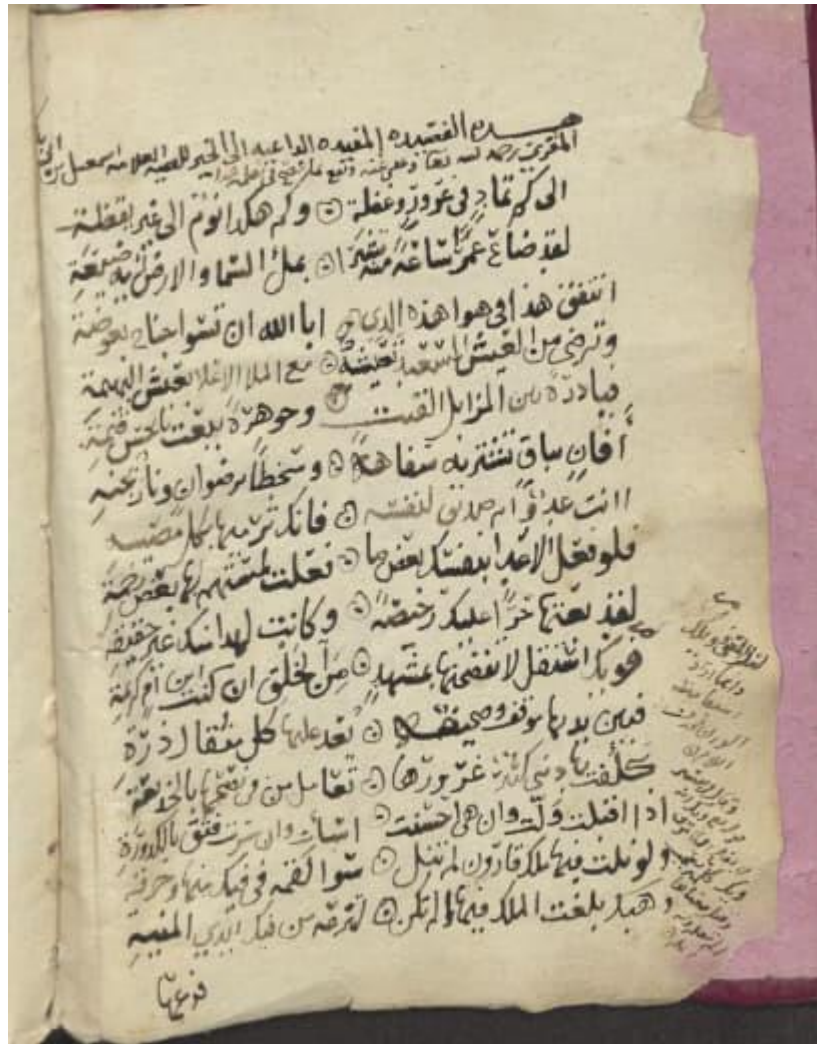 هذه القصيده المفيده الداعيه الى الخير للفقيه العلامه اسمعيل بن
المقري رحمه الله تعا
الى كم تماد في غرور وغفلة ۞ وكم هكذا نوم الى غير يقظة
لقد ضاع عمر ساعة منه تشترا ۞ بملئ السما والارض اية ضيعة
اتنفق هذا في هوا هذه التي ۞ ابا الله ان تسوا جناح بعوضة
وترضى من العيش السعيد تعيشه ۞ مع الملا الاعلا بعيش البهيمة
فيادرة بين المزابل القيت ۞ وجوهرة بيعت بابخس قيمة
افان بباق تشتريه سفاهة ۞ وسخطا برضوان ونار بجنه
اانت عدو ام صديق لنفسه ۞ فانك ترميها بكل مصيبه
فلو فعل الاعدا بنفسك بعض ما ۞ فعلت لمستهم لها بعض رحمة
لقد بعتها خزا عليك رخيصة ۞ وكانت لهذا منك غير حقيقة
فويك استقل لا تفضحنها بمشهد ۞ من الخلق ان كنت ابن ام كريمة
فبين يديها موقف وصحيفة ۞ تعد عليها كل مثقال ذرة
كلفت بها دنيا كثير غرورها ۞ تعامل من في نصحها بالخديعة
اذا اقبلت ولت وان هي احسنت ۞ اسات وان سرت فثق بالكدورة
ولو نلت فيها ملك قارون لم تنل ۞ سوا لقمه في فيك منها وخرقة
وهبك بلغت الملك فيها الم تكن ۞ لتنزعه من فيك ايدي المنية
فدعها